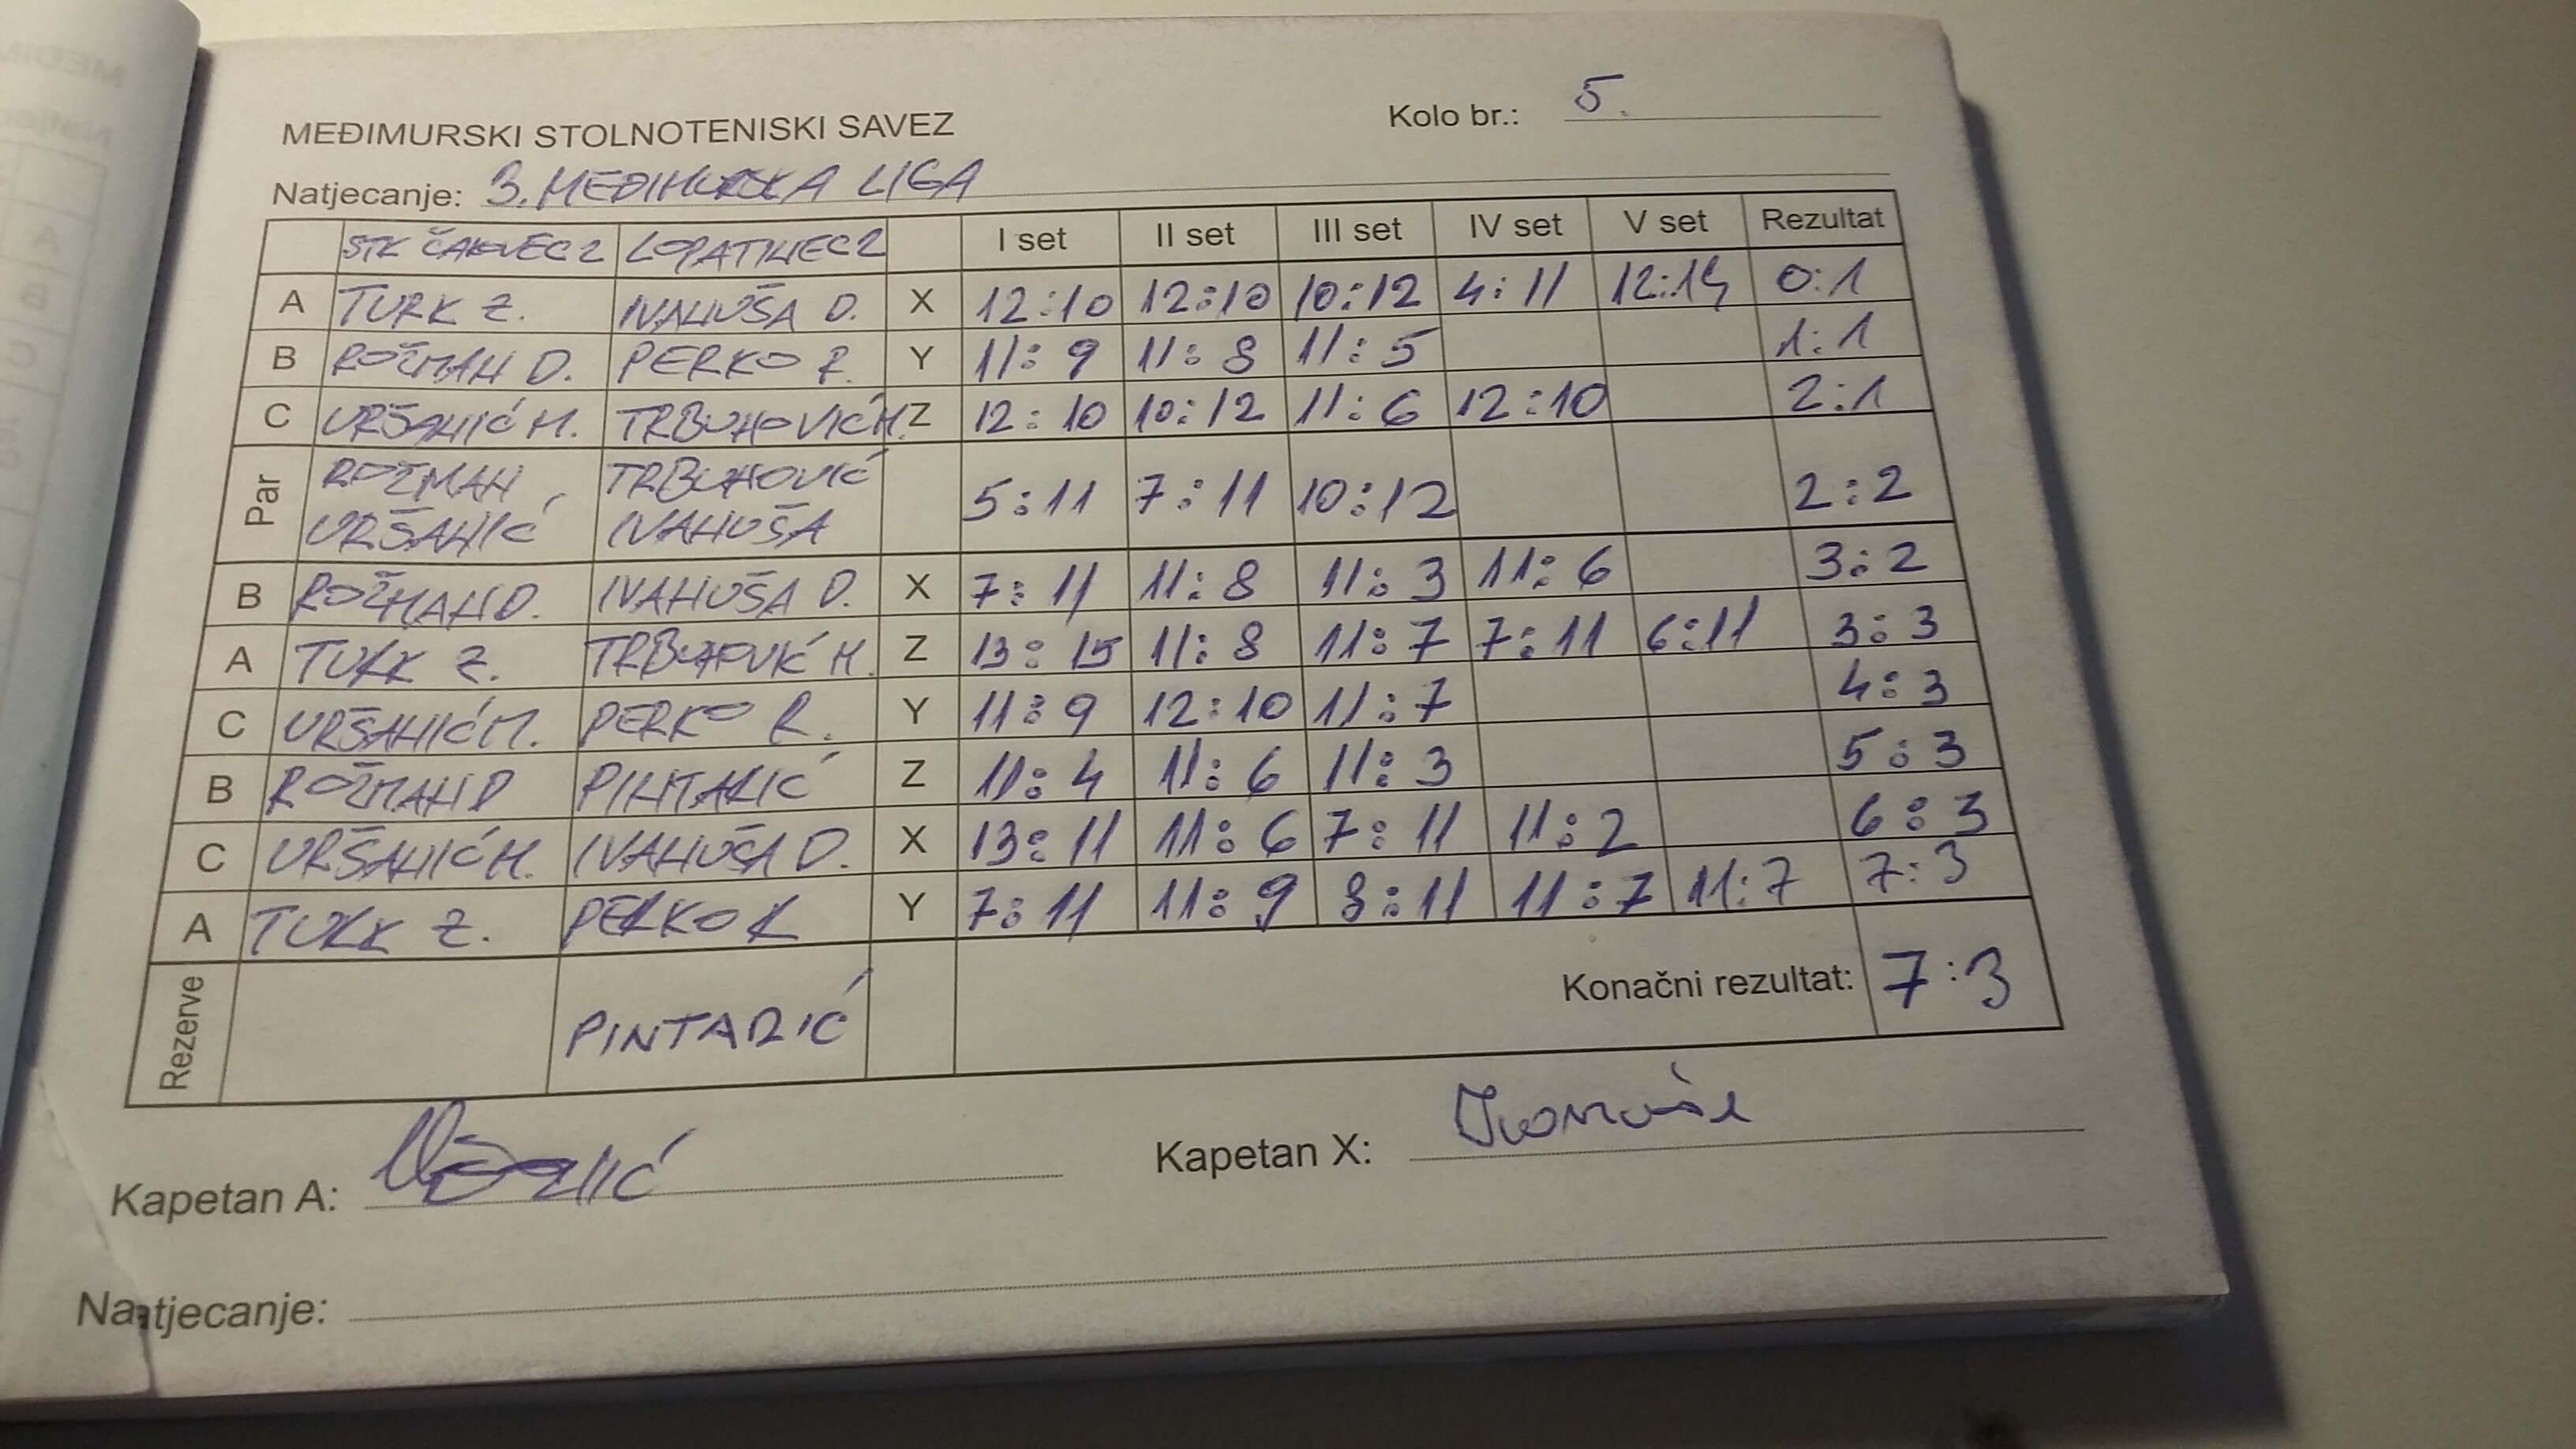 MEĐIMURSKI STOLNOTENISKI SAVEZ Kolo br.: 5.
Natjecanje: 3. MEĐIMURSKA LIGA
STK ČAKOVEC 2 LOPATINEC 2 I set II set III set IV set V set Rezultat
A TURK Z. IVANUŠA D. X 12:10 12:10 10:12 4:11 12:14 0:1
B ROŽMAN D. PERKO R. Y 11:9 11:8 11:5 1:1
C URŠANIĆ M. TRBUHOVIĆ M. Z 12:10 10:12 11:6 12:10 2:1
Par ROŽMAN, TRBUHOVIĆ 5:11 7:11 10:12 2:2
URŠANIĆ IVANUŠA
B ROŽMAN D. IVANUŠA D. X 7:11 11:8 11:3 11:6 3:2
A TURK Z. TRBUHOVIĆ M. Z 13:15 11:8 11:7 7:11 6:11 3:3
C URŠANIĆ M. PERKO R. Y 11:9 12:10 11:7 4:3
B ROŽMAN D PINTARIĆ Z 11:4 11:6 11:3 5:3
C URŠANIĆ M. IVANUŠA D. X 13:11 11:6 7:11 11:2 6:3
A TURK Z. PERKO R Y 7:11 11:9 8:11 11:7 11:7 7:3
Rezerve PINTARIĆ Konačni rezultat: 7:3
Kapetan A: Kapetan X: Ivanuša
Natjecanje: